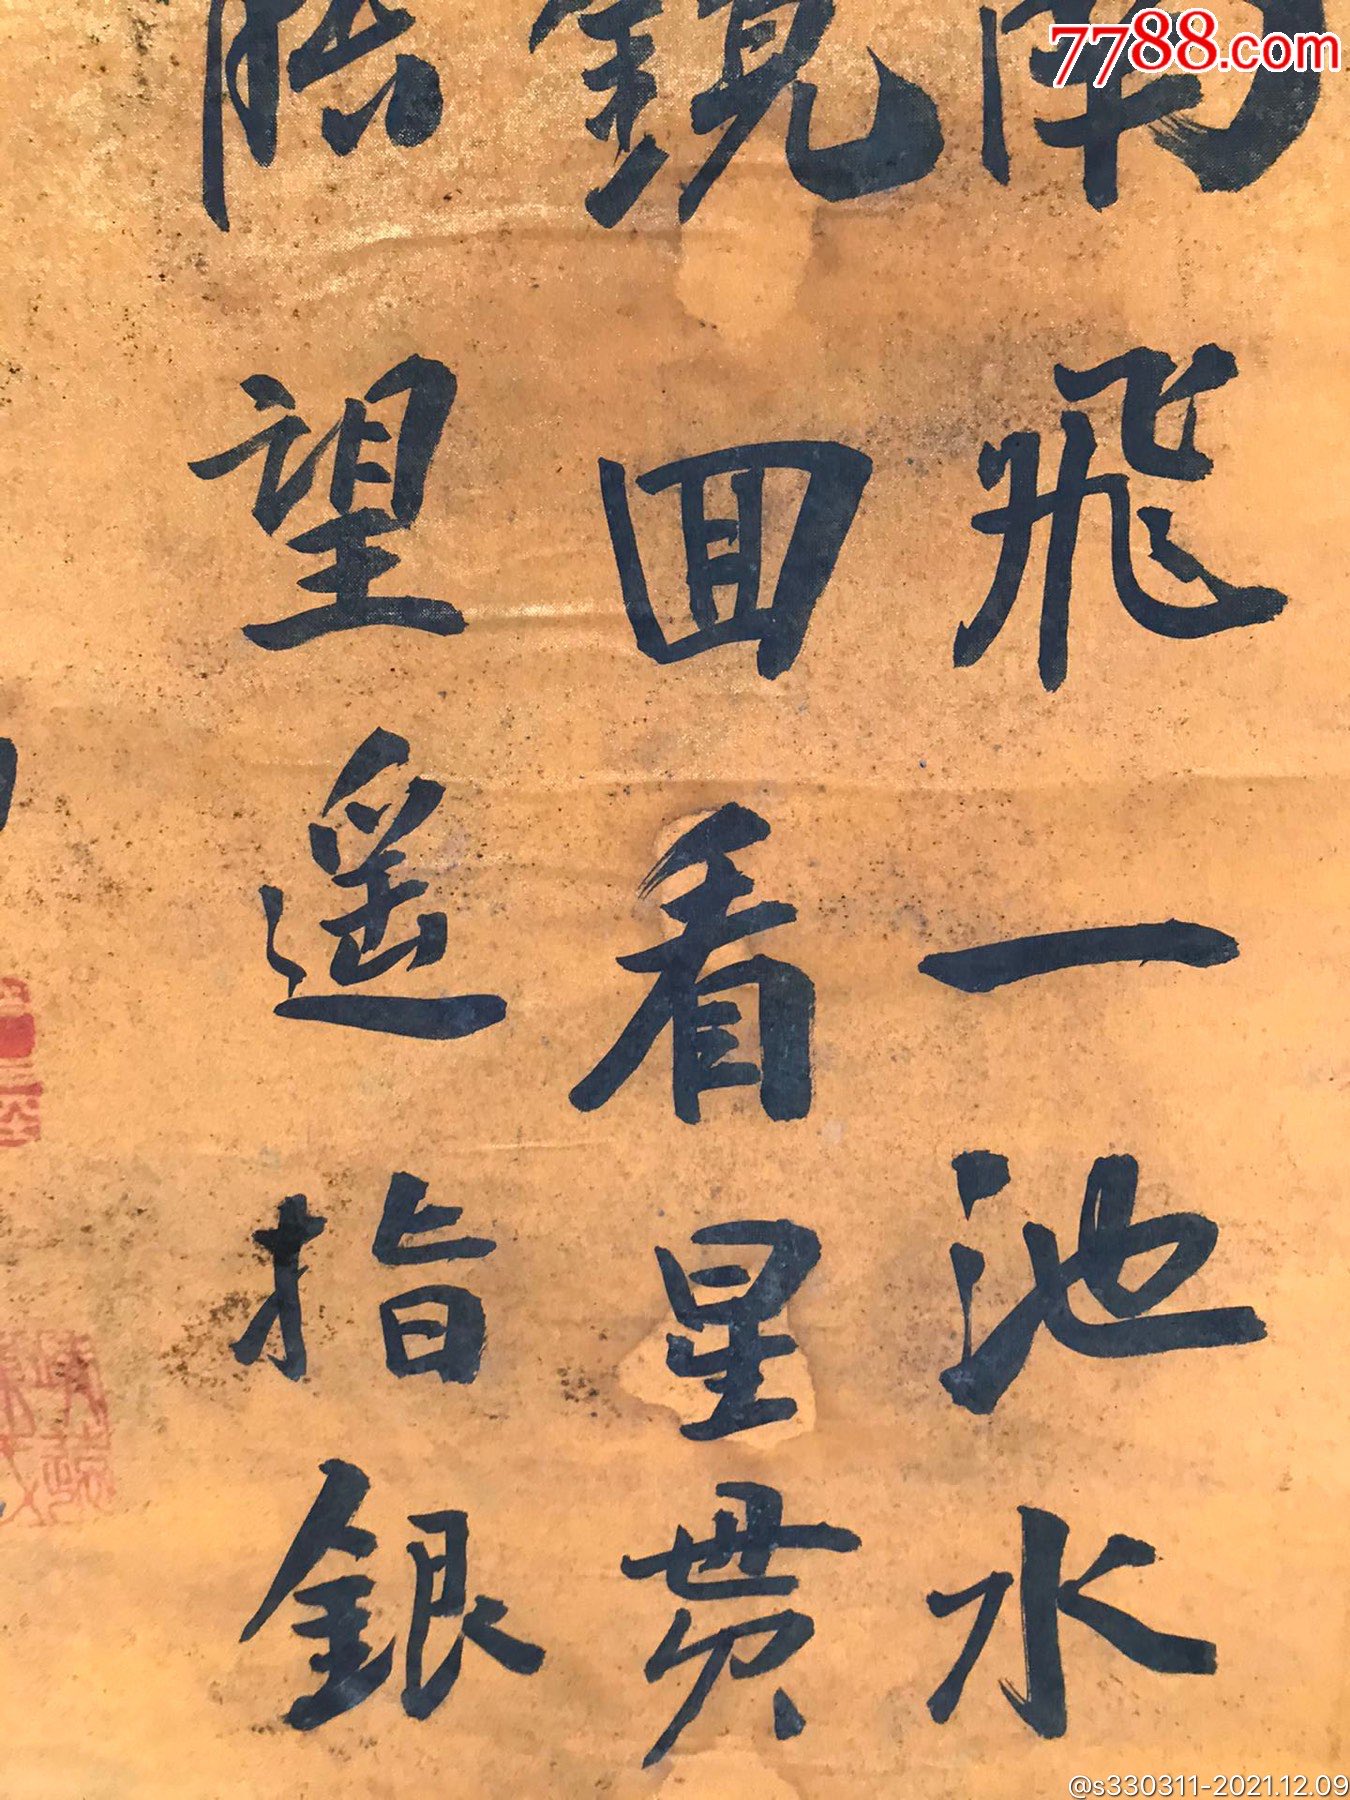 7788.com
南飛一池水
鏡回看星貫
臨望遥指銀
@s330311-2021.12.09